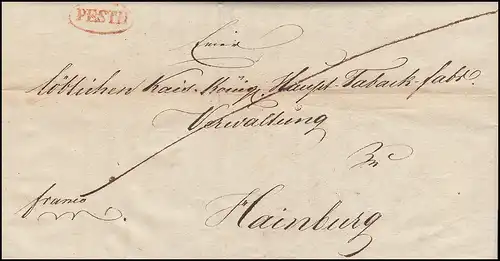 PESTH
Einer
löblichen Kais. König. Haupt-Taback-fabr.
Verwaltung
Zu
franco
Hainburg